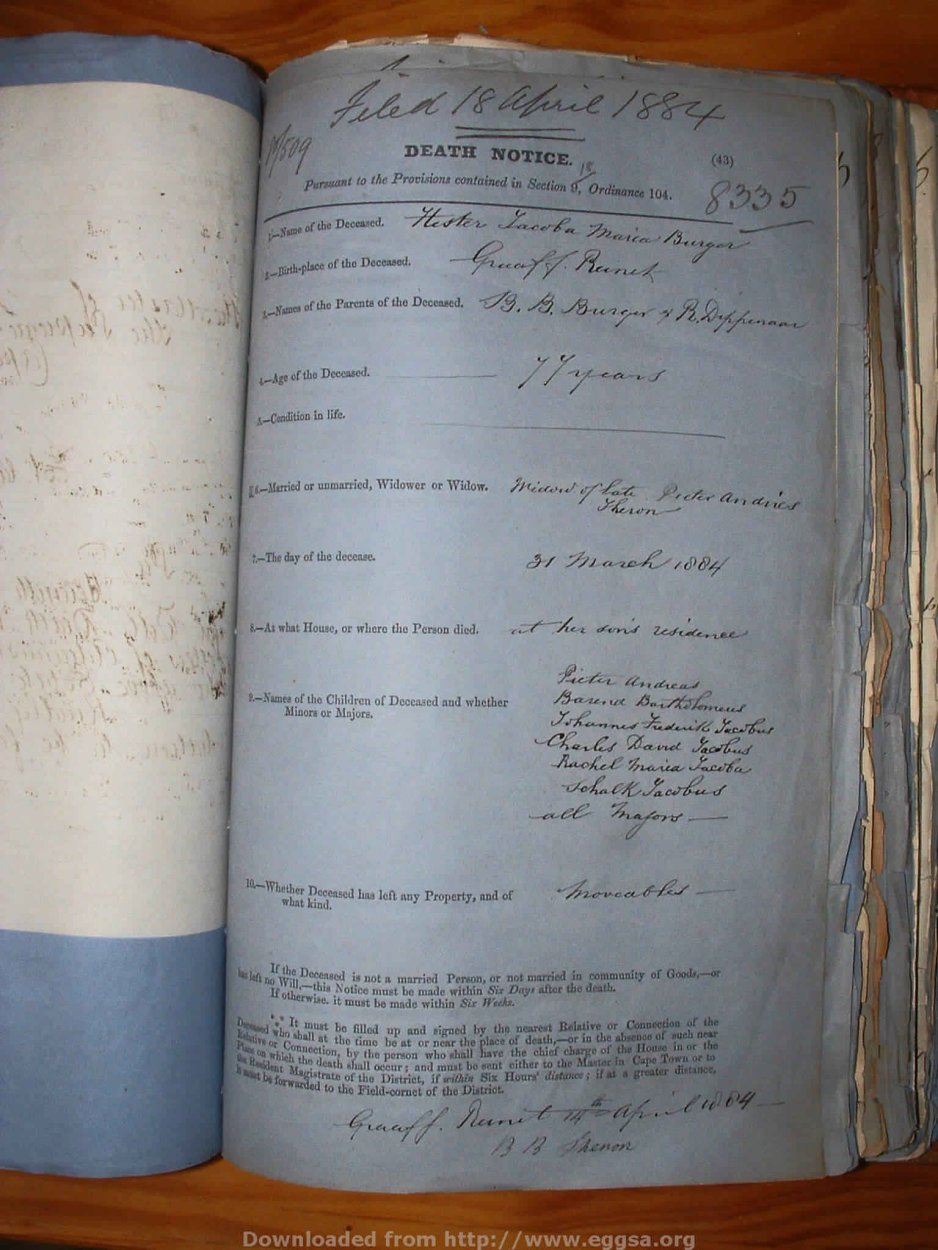 Filed 18 April 1884
DEATH NOTICE.
(43)
Pursuant to the Provisions contained in Section 9, Ordinance 104.
8335
1.—Name of the Deceased. Hester Jacoba Maria Burger
2.—Birth-place of the Deceased. Graaff. Reinet
3.—Names of the Parents of the Deceased. B. B. Burger & R. Dippenaar
4.—Age of the Deceased. 77 years
5.—Condition in life.
6.—Married or unmarried, Widower or Widow. Widow of late Pieter Andries
Theron
7.—The day of the decease. 31 March 1884
8.—At what House, or where the Person died. at her son's residence
9.—Names of the Children of Deceased and whether
Minors or Majors.
Pieter Andreas
Barend Bartholomeus
Johannes Frederik Jacobus
Charles David Jacobus
Rachel Maria Jacoba
Schalk Jacobus
all Majors
10.—Whether Deceased has left any Property, and of
what kind.
Moveables
If the Deceased is not a married Person, or not married in community of Goods,—or
has left no Will,—this Notice must be made within Six Days after the death.
If otherwise, it must be made within Six Weeks.
It must be filled up and signed by the nearest Relative or Connection of the
Deceased who shall at the time be at or near the place of death,—or in the absence of such near
Relative or Connection, by the person who shall have the chief charge of the House in or the
Place on which the death shall occur; and must be sent either to the Master in Cape Town or to
the Resident Magistrate of the District, if within Six Hours' distance; if at a greater distance,
it must be forwarded to the Field-cornet of the District.
Graaff. Reinet 14th April 1884
B B Theron
Downloaded from http://www.eggsa.org